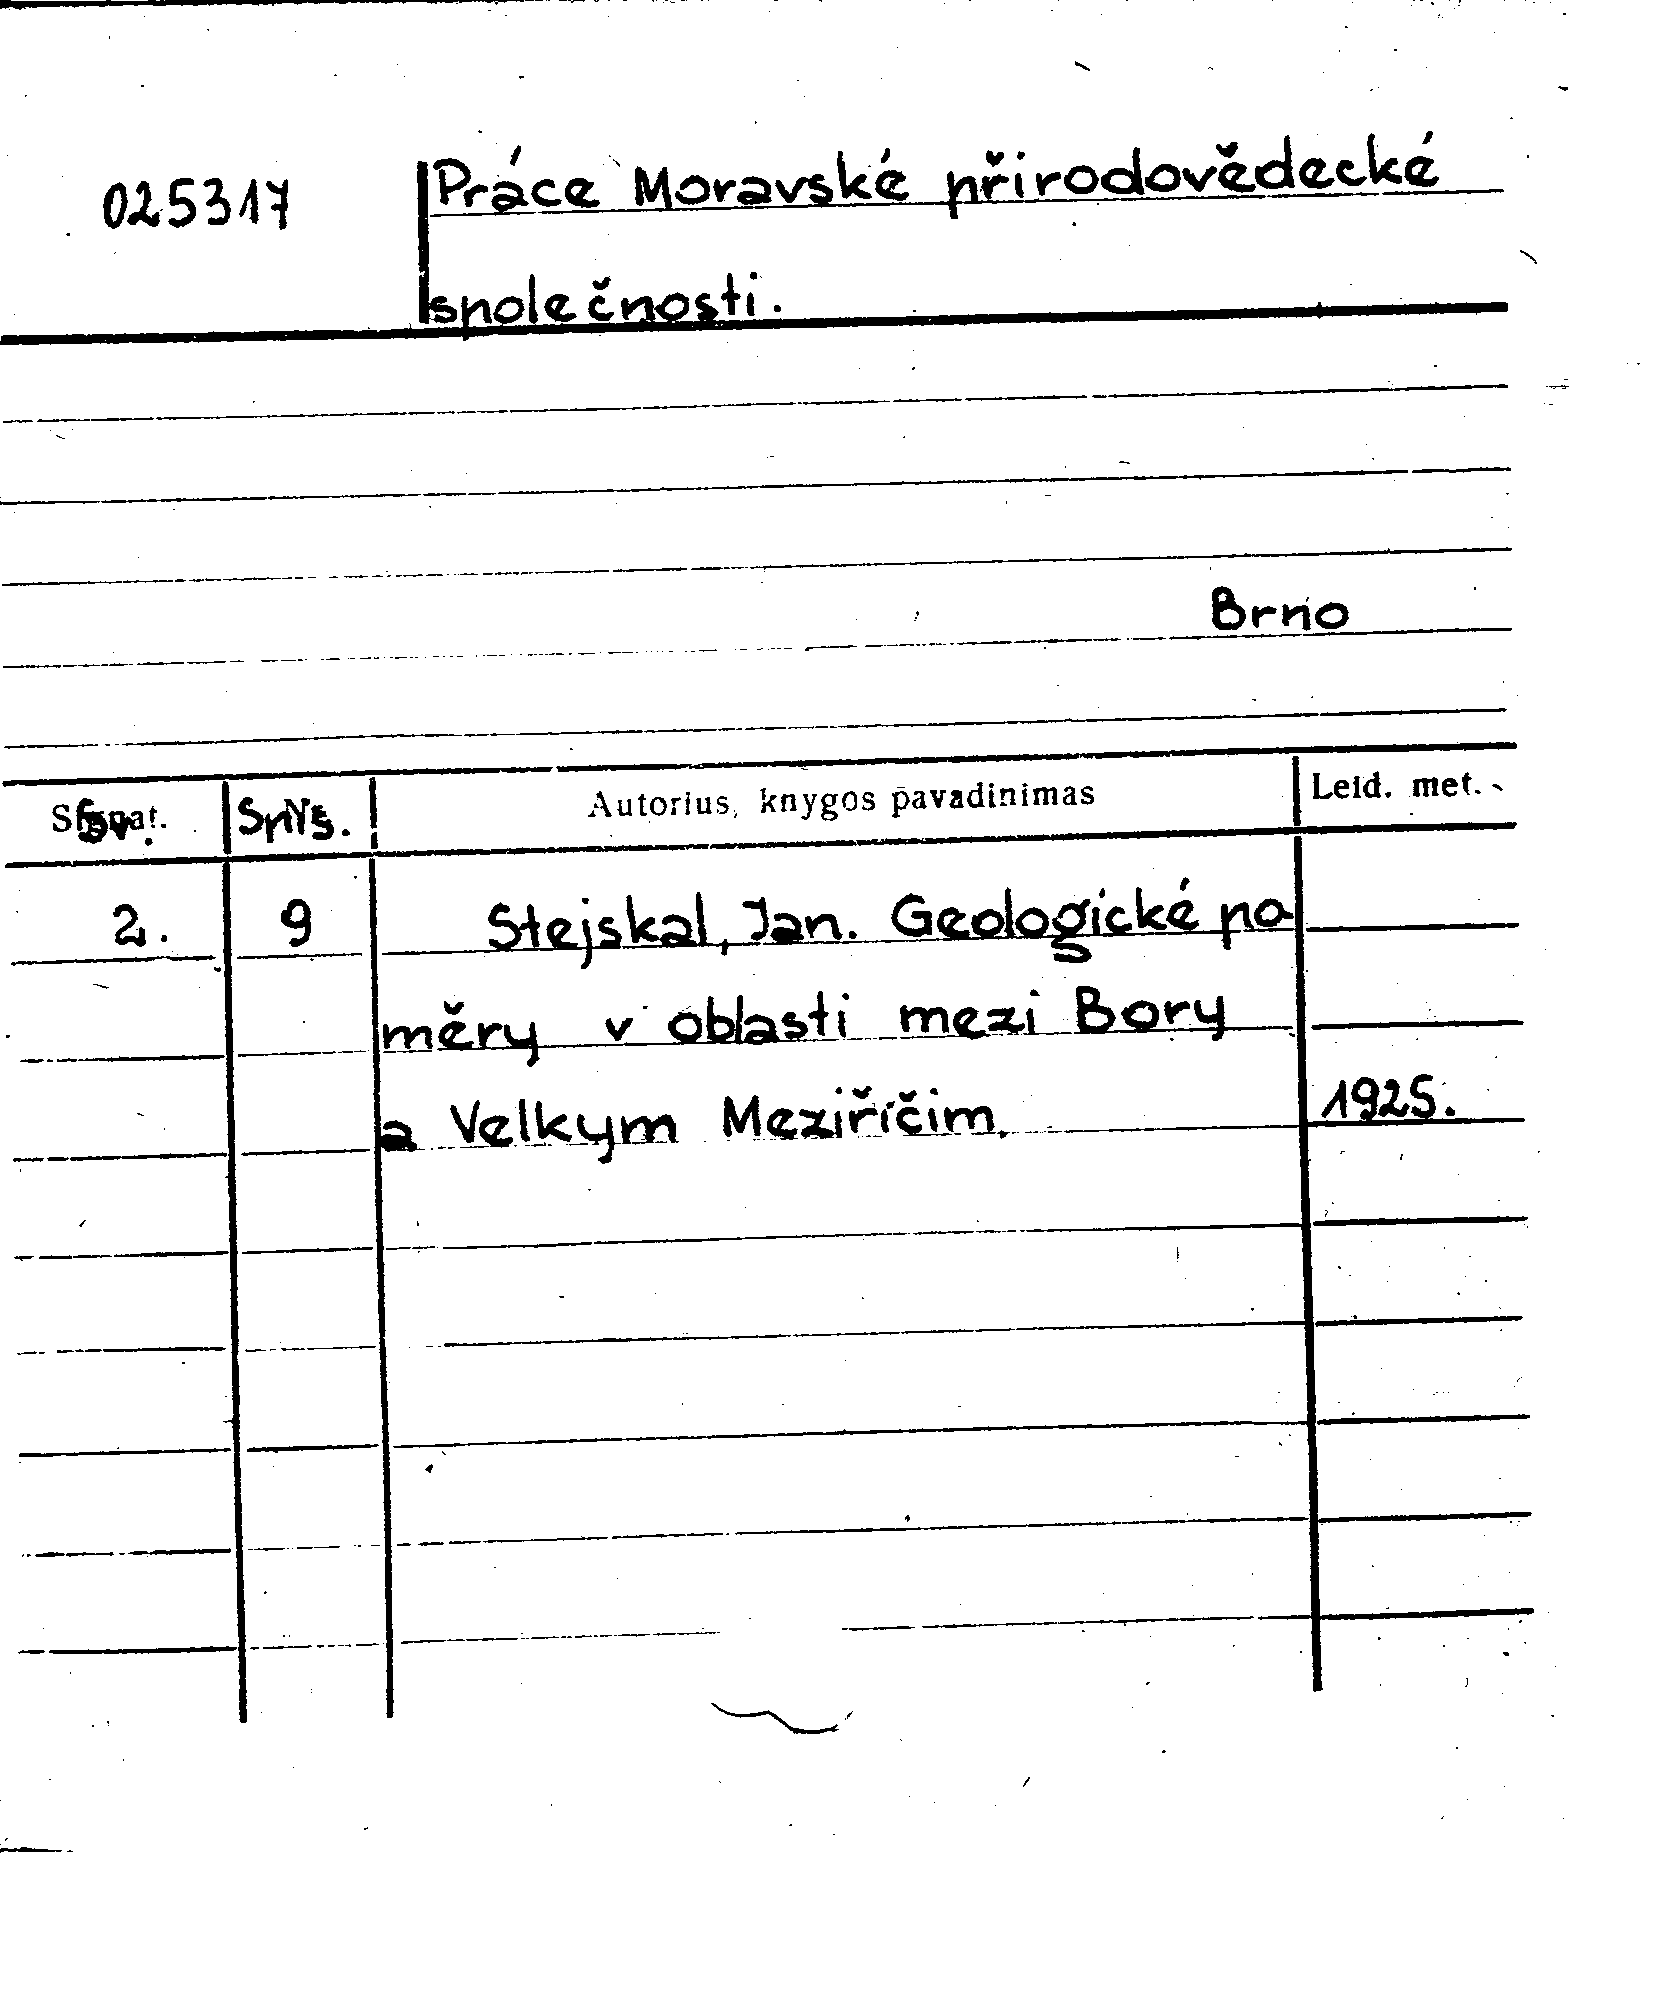 025317 Práce Moravské přirodovědecké
společnosti.
Brno
Sv. Autorius, knygos pavadinimas Leid. met.
2. 9 Stejskal, Jan. Geologické po-
měry v oblasti mezi Bory
a Velkym Meziřičim. 1925.